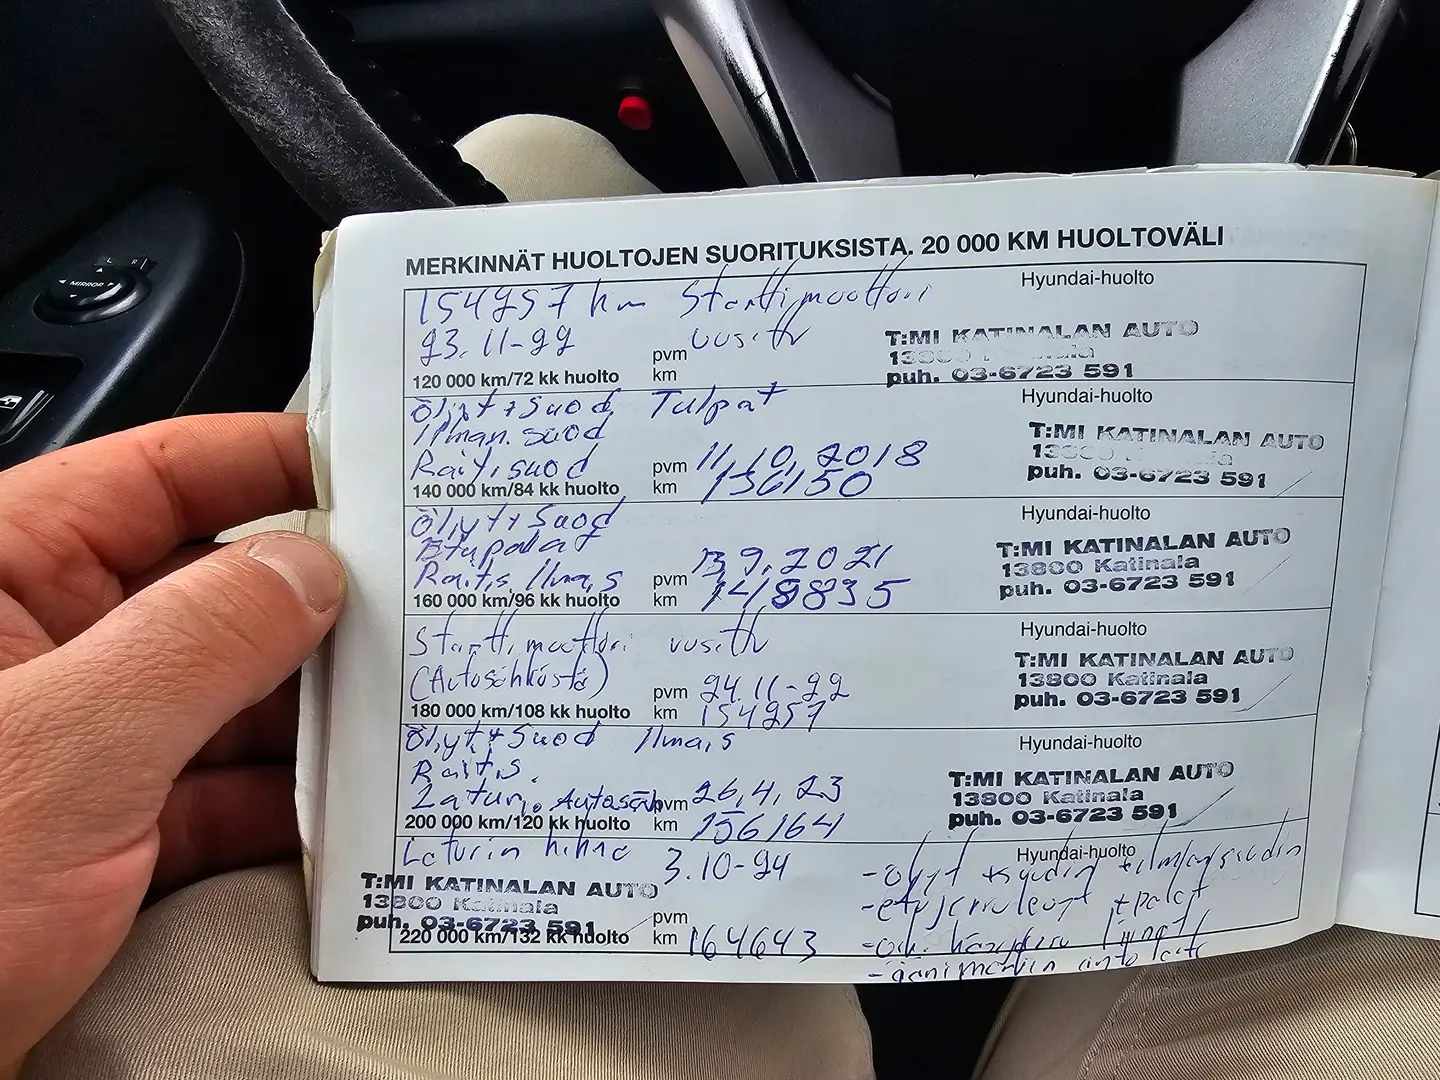 MIRROR
L R
MERKINNÄT HUOLTOJEN SUORITUKSISTA. 20 000 KM HUOLTOVÄLI
154257 km Starttimoottori
23.11-22 uusittu
Hyundai-huolto
T:MI KATINALAN AUTO
13800 Katinala
puh. 03-6723 591
pvm
120 000 km/72 kk huolto km
Öljyt + Suod Tulpat
Ilman. suod
Hyundai-huolto
T:MI KATINALAN AUTO
13800 Katinala
puh. 03-6723 591
Rait, suod pvm 11.10.2018
140 000 km/84 kk huolto km 136150
Öljyt + Suod
Etupalat
Hyundai-huolto
T:MI KATINALAN AUTO
13800 Katinala
puh. 03-6723 591
Raitis, Ilmais pvm 13 9.2021
160 000 km/96 kk huolto km 148835
Starttimoottori uusittu
(Autosähköstä)
Hyundai-huolto
T:MI KATINALAN AUTO
13800 Katinala
puh. 03-6723 591
pvm 24.11-22
180 000 km/108 kk huolto km 154257
Öljyt + Suod Ilmais
Raitis.
Hyundai-huolto
T:MI KATINALAN AUTO
13800 Katinala
puh. 03-6723 591
Latur. Autosäh pvm 26.4.23
200 000 km/120 kk huolto km 156164
Laturin hihna 3.10-24
Hyundai-huolto
T:MI KATINALAN AUTO
13800 Katinala
puh. 03-6723 591
pvm
220 000 km/132 kk huolto km 164643
- öljyt +
- etujarrulevyt + palat
- äänimerkin